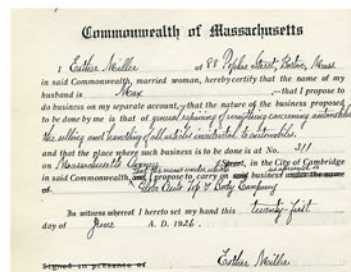 Commonwealth of Massachusetts
I Esther Miller of 88 Poplar Street, Boston, Mass
in said Commonwealth, married woman, hereby certify that the name of my
husband is Max ,—that I propose to
do business on my separate account,—that the nature of the business proposed
to be done by me is that of general repairing of everything concerning automobiles
the selling and handling of all articles incidental to automobiles.
and that the place where such business is to be done is at No. 311
on Massachusetts Avenue Street, in the City of Cambridge
that the name under which as aforesaid is
in said Commonwealth, and I propose to carry on said business under the name
of Auto Top & Body Company
In witness whereof I hereto set my hand this twenty-first
day of June A. D. 1926.
Signed in presence of
Esther Miller